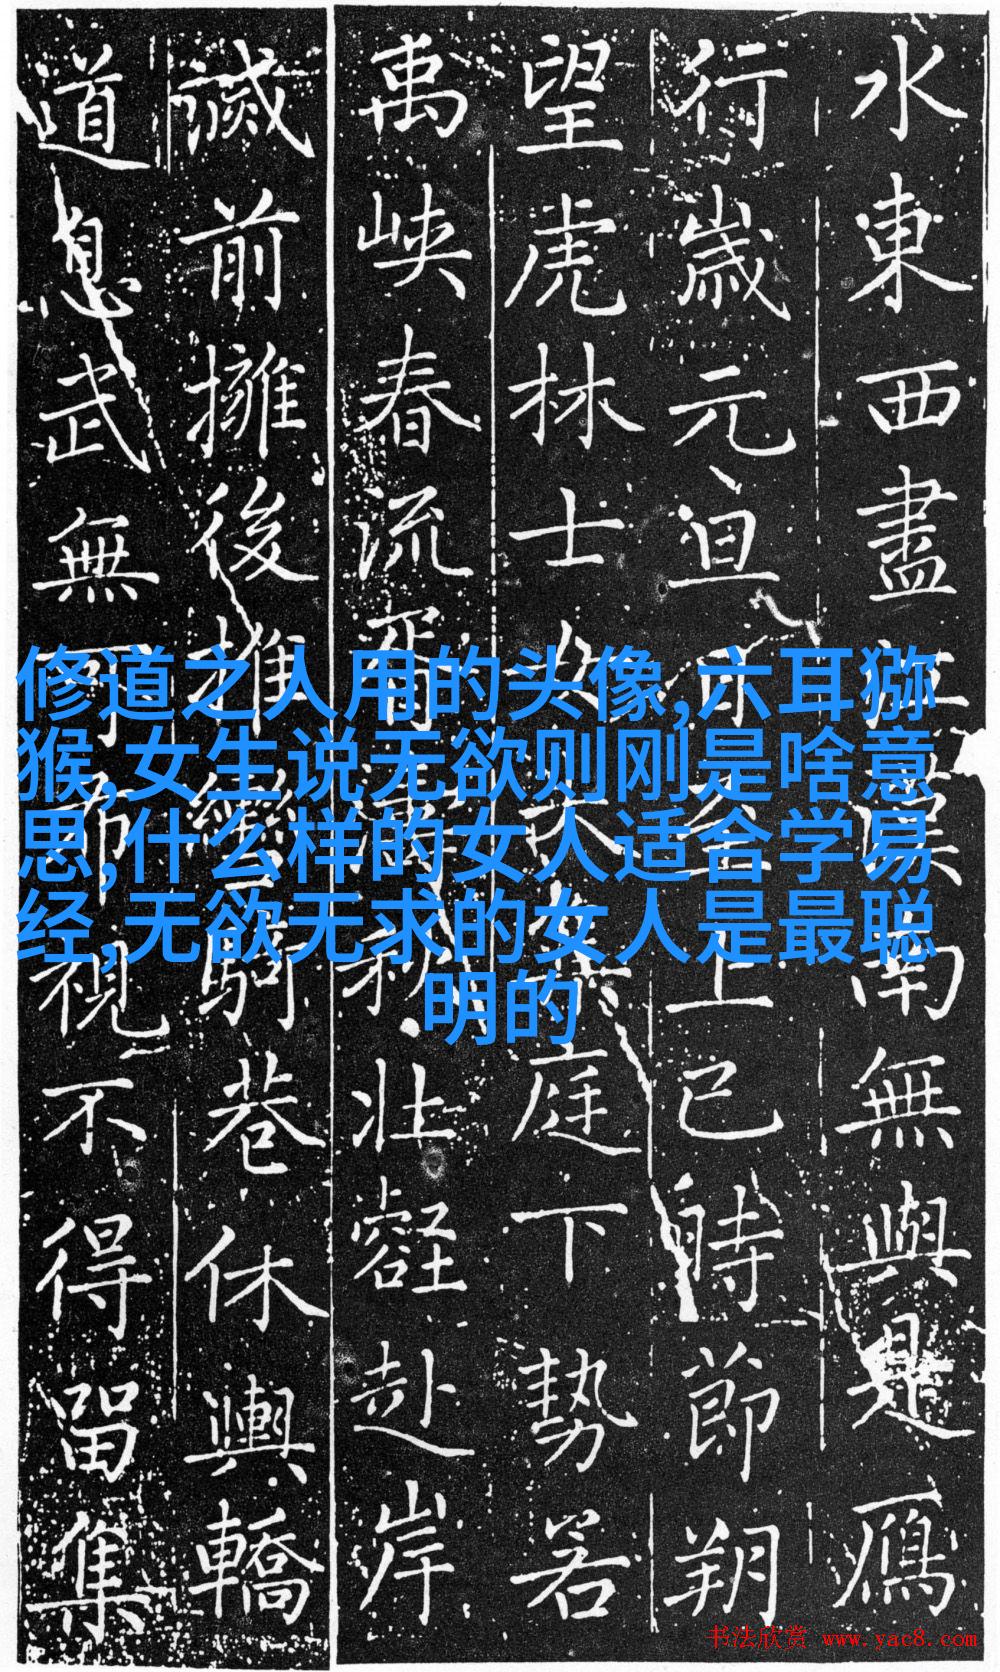 水東西盡漢南無與是鴈
行歲元旦至上巳時節朔
望虎林士女大集庭下勢若
禹峽春流秋壯壑赴岸
前擁後推駒巷休輿轎
道息武無視不得留集
修道之人用的头像,六耳猕
猴,女生说无欲则刚是啥意
思,什么样的女人适合学易
经,无欲无求的女人是最聪
明的
书法欣赏 www.yac8.com